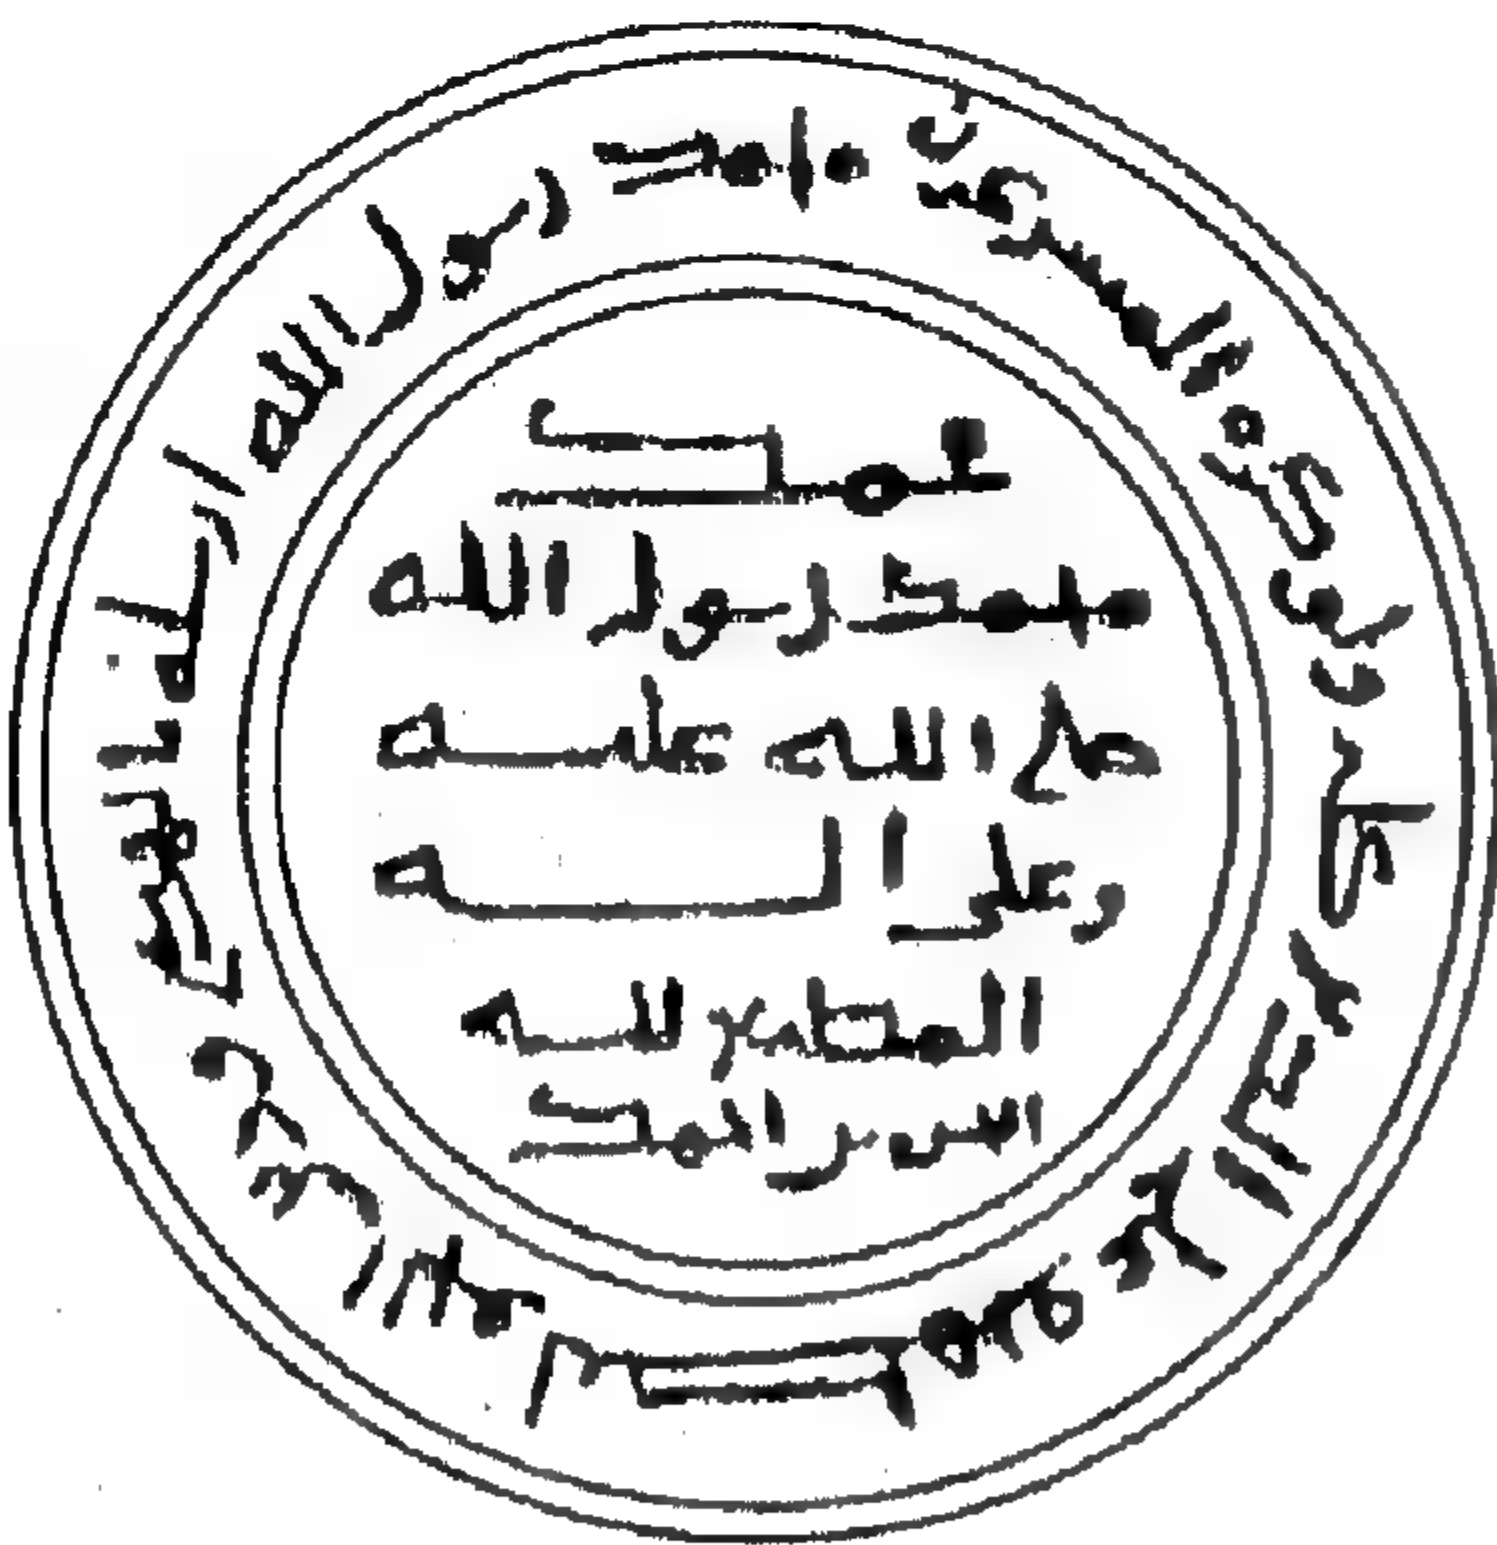 محمد رسول الله
صلى الله عليه
وعلى اله
المطيع لله
بن احمد
محمد رسول الله ارسله بالهدى ودين الحق ليظهره على الدين كله ولو كره المشركون